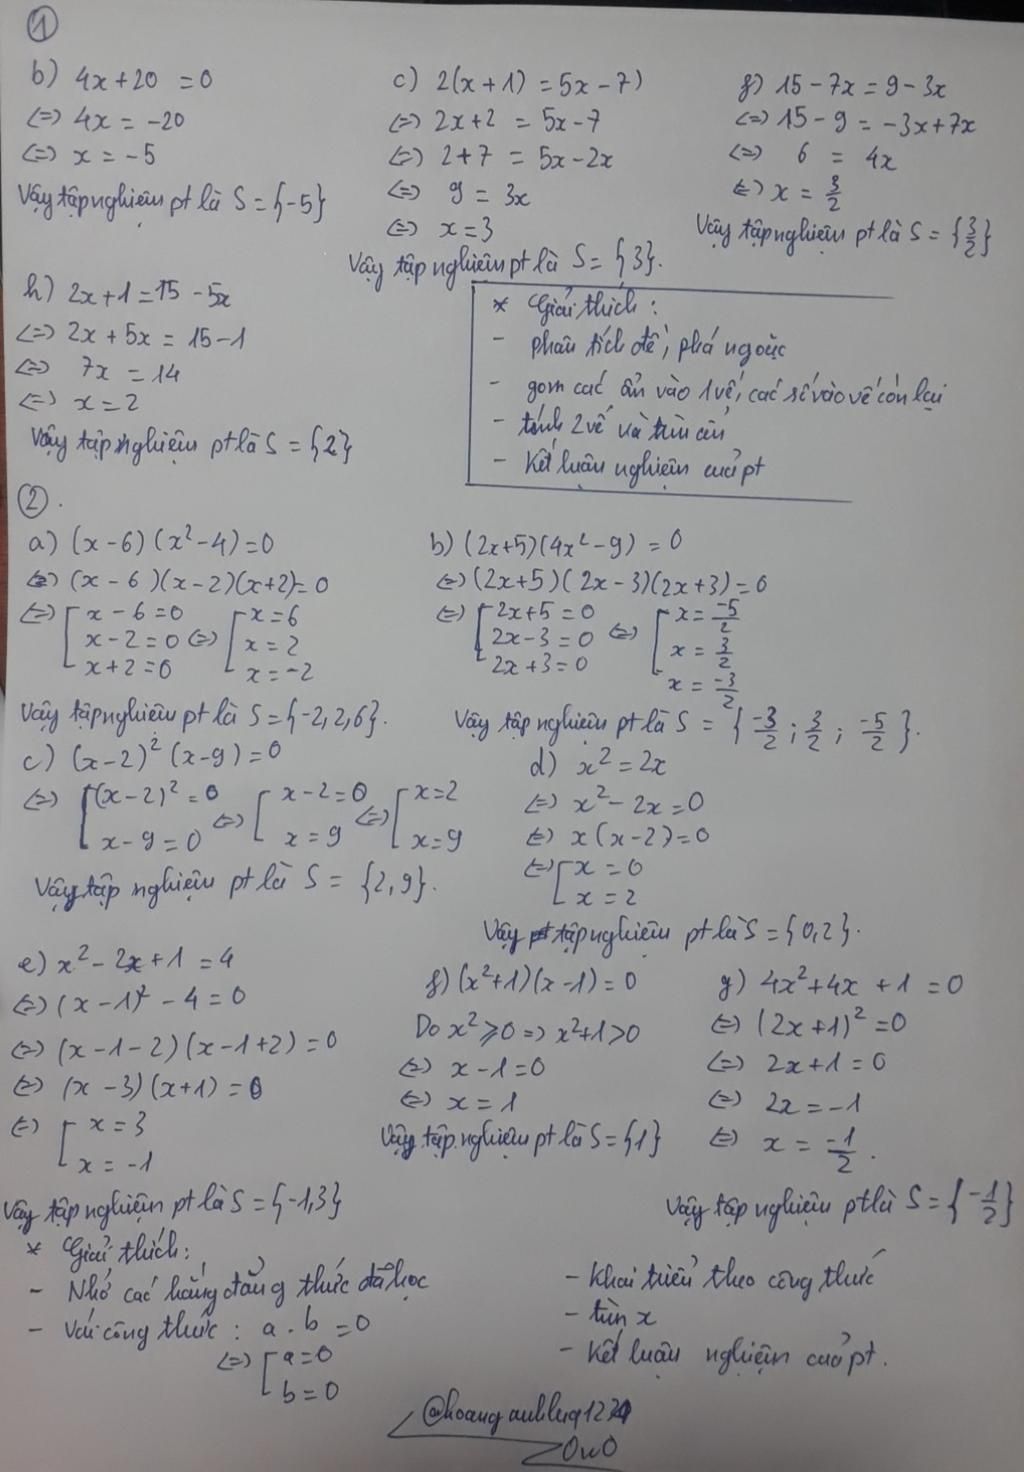 1
b) 4x+20 = 0
<=> 4x = -20
<=> x = -5
Vậy tập nghiệm pt là S = {-5}
c) 2(x+1) = 5x-7)
<=> 2x+2 = 5x-7
<=> 2+7 = 5x-2x
<=> 9 = 3x
<=> x = 3
Vậy tập nghiệm pt là S = {3}.
g) 15-7x = 9-3x
<=> 15-9 = -3x+7x
<=> 6 = 4x
<=> x = 3/2
Vậy tập nghiệm pt là S = {3/2}
h) 2x+1 = 15-5x
<=> 2x+5x = 15-1
<=> 7x = 14
<=> x = 2
Vậy tập nghiệm pt là S = {2}
* Giải thích:
- phân tích đề, phá ngoặc
- gom các ẩn vào 1 vế, các số vào vế còn lại
- tính 2 vế và tìm ẩn
- Kết luận nghiệm của pt
2.
a) (x-6)(x²-4)=0
<=> (x-6)(x-2)(x+2)=0
<=> [ x-6=0 <=> [ x=6
x-2=0 x=2
x+2=0 x=-2
Vậy tập nghiệm pt là S={-2,2,6}.
b) (2x+5)(4x²-9) = 0
<=> (2x+5)(2x-3)(2x+3)=0
<=> [ 2x+5=0 <=> [ x = -5/2
2x-3=0 x = 3/2
2x+3=0 x = -3/2
Vậy tập nghiệm pt là S = {-3/2; 3/2; -5/2}.
c) (x-2)²(x-9)=0
<=> [ (x-2)²=0 <=> [ x-2=0 <=> [ x=2
x-9=0 x=9 x=9
Vậy tập nghiệm pt là S = {2,9}.
d) x² = 2x
<=> x²-2x=0
<=> x(x-2)=0
<=> [ x=0
x=2
Vậy tập nghiệm pt là S={0,2}.
e) x²-2x+1 = 4
<=> (x-1)²-4 = 0
<=> (x-1-2)(x-1+2)=0
<=> (x-3)(x+1)=0
<=> [ x=3
x=-1
Vậy tập nghiệm pt là S={-1,3}
f) (x²+1)(x-1)=0
Do x²≥0 => x²+1>0
<=> x-1=0
<=> x=1
Vậy tập nghiệm pt là S={1}
g) 4x²+4x+1=0
<=> (2x+1)²=0
<=> 2x+1=0
<=> 2x=-1
<=> x = -1/2.
Vậy tập nghiệm pt là S={-1/2}
* Giải thích:
- Nhớ các hằng đẳng thức đã học
- Với công thức: a.b=0
<=> [ a=0
b=0
- Khai triển theo công thức
- tìm x
- Kết luận nghiệm của pt.
OwO